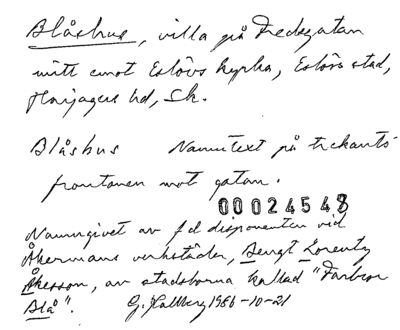 Blåshus, villa på Fredsgatan
mitt emot Eslövs kyrka, Eslövs stad,
Harjagers hd, Sk.
Blåshus Namntext på trekants-
frontonen mot gatan.
00024548
Namngivet av f d disponenten vid
Åkermans verkstäder, Bengt Lorentz
Åkesson, av stadsborna kallad "Farbror
Blå". G. Hallberg 1986-10-21